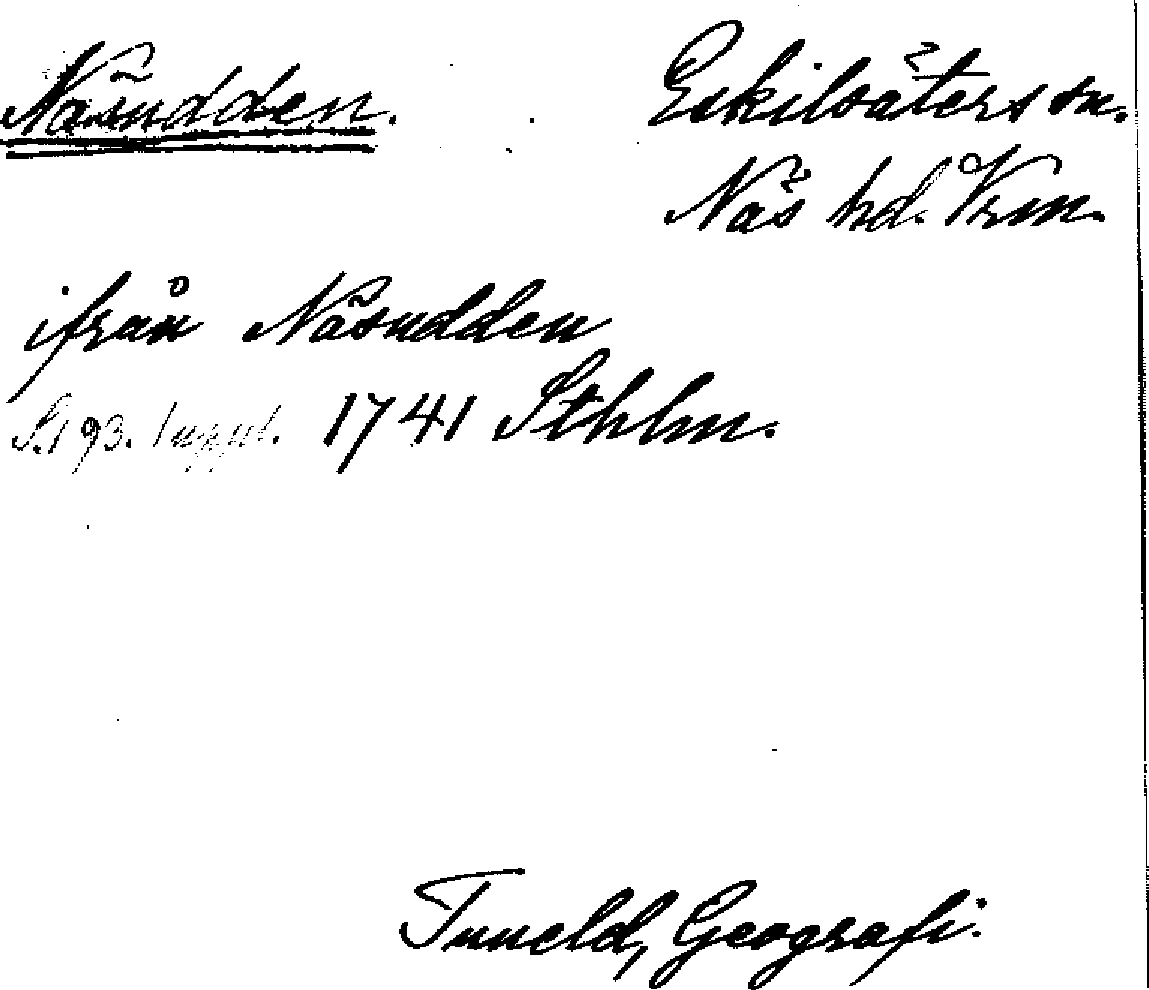 Näsudden. Eskilsäters sn.
Näs hd. Vrm.
ifrån Näsudden
S. 193. 1 uppl. 1741 Sthlm.
Tuneld, Geografi.